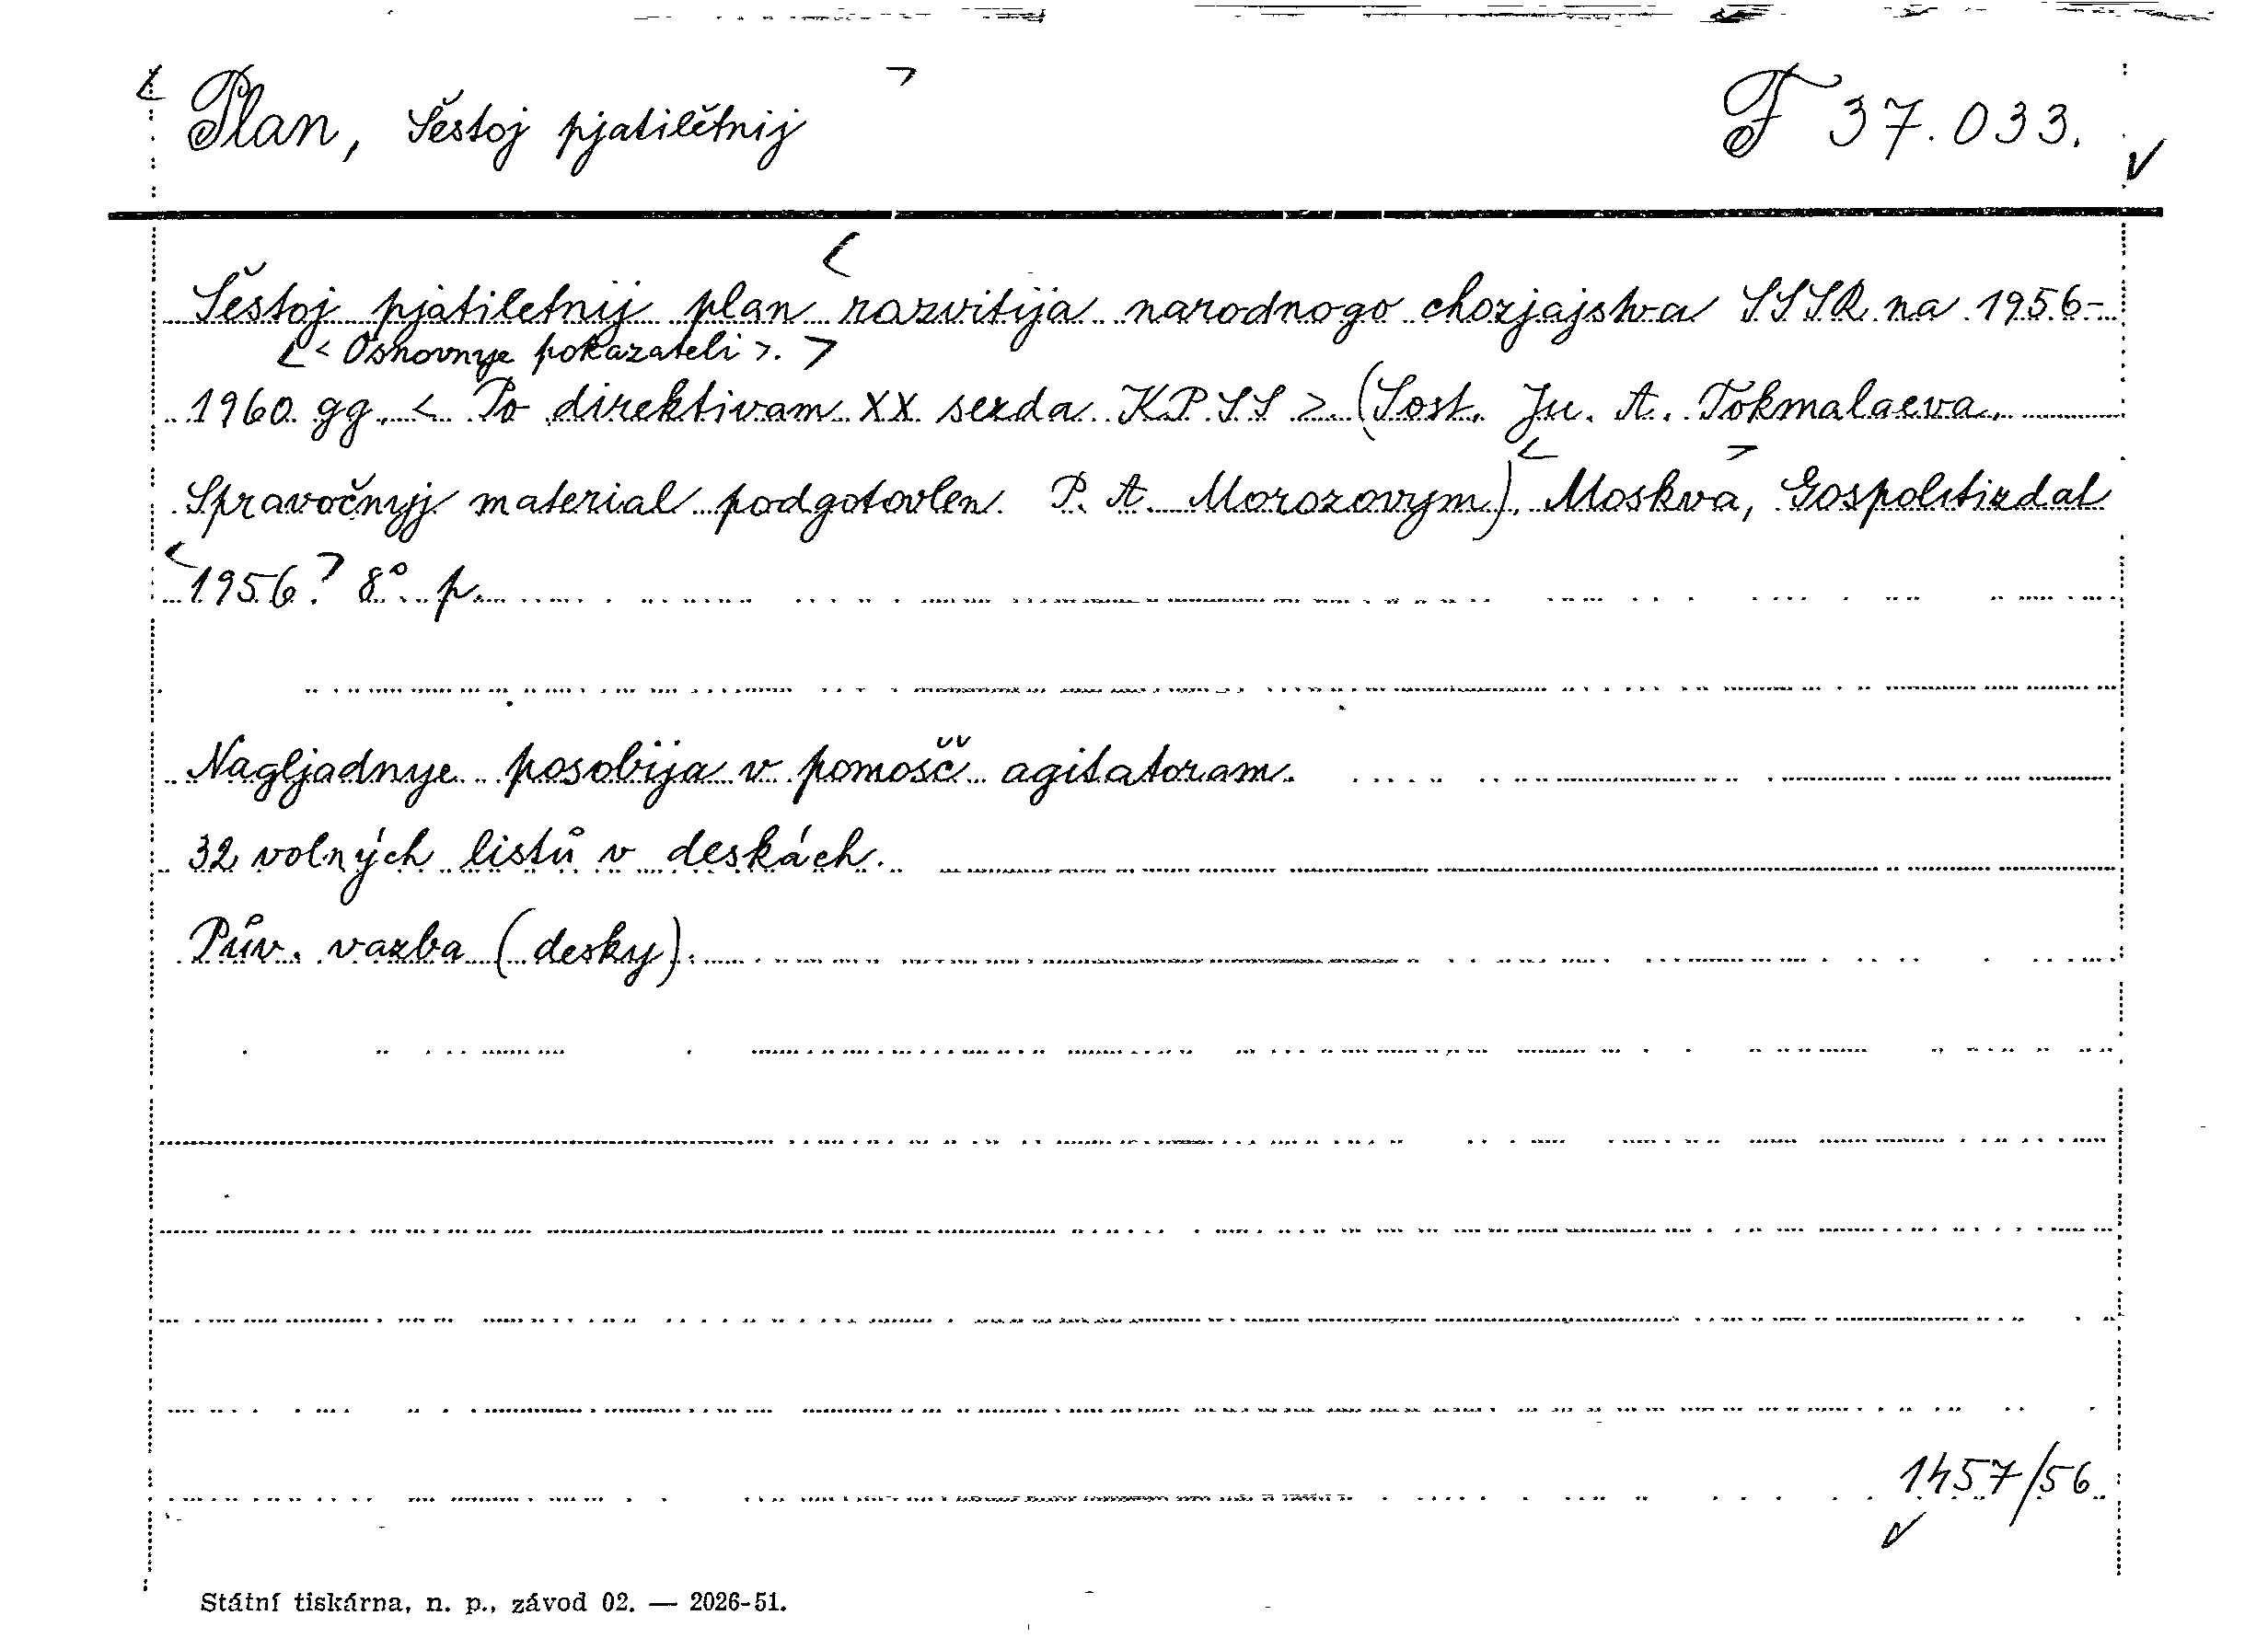 Plan, Šestoj pjatilětnij
F 37.033.
Šestoj pjatiletnij plan razvitija narodnogo chozjajstva SSSR na 1956-
< Osnovnye pokazateli >.
1960 gg. < Po direktivam XX sezda KPSS >. (Sost. Ju. A. Tokmalaeva.
Spravočnyj material podgotovlen P. A. Morozovym). Moskva, Gospolitizdat
1956. 8° p.
Nagljadnye posobija v pomošč agitatoram.
32 volných listů v deskách.
Pův. vazba (desky).
1457/56
Státní tiskárna, n. p., závod 02. — 2026-51.